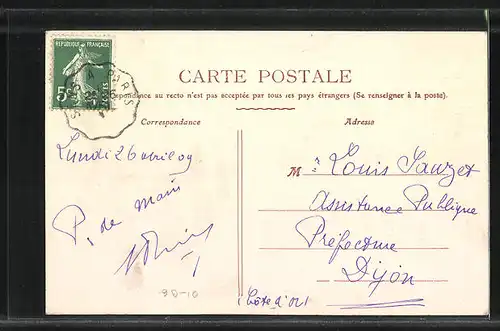 REPUBLIQUE FRANÇAISE
5c
POSTES
PARIS
CARTE POSTALE
respondance au recto n'est pas acceptée par tous les pays étrangers (Se renseigner à la poste).
Correspondance
Adresse
Lundi 26 avril 09
P. de main
M Louis Sauzet
Assistance Publique
Préfecture
Dijon
(Côte d'Or)
90-10